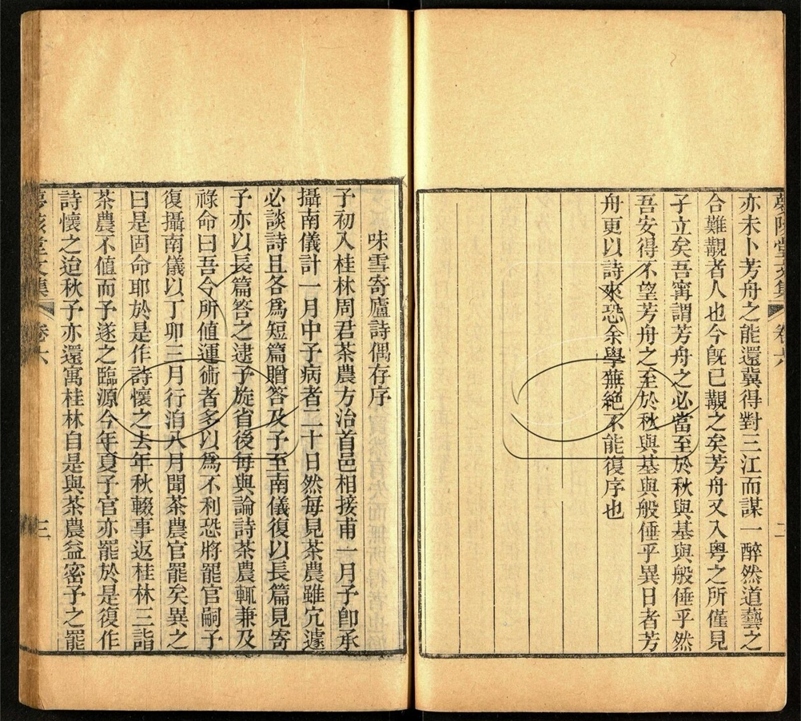 亦未卜芳舟之能還冀得對三江而謀一醉然道藝之
合難覯者人也今旣已覯之矣芳舟又入粵之所僅見
子立矣吾甯謂芳舟之必當至於秋與基與般倕乎然
吾安得不望芳舟之至於秋與基與般倕乎異日者芳
舟更以詩來恐余學蕪絕不能復序也
堂文集
卷六
二
味雪寄廬詩偶存序
予初入桂林周君茶農方治首邑相接甫一月予卽承
攝南儀計一月中予病者二十日然每見茶農雖宂遽
必談詩且各爲短篇贈答及予至南儀復以長篇見寄
予亦以長篇答之逮予旋省後每與論詩茶農輒兼及
祿命曰吾今所値運術者多以爲不利恐將罷官嗣予
復攝南儀以丁卯三月行洎八月聞茶農官罷矣異之
曰是固命耶於是作詩懷之去年秋輟事返桂林三詣
茶農不值而予遂之臨源今年夏予官亦罷於是復作
詩懷之迨秋予亦還寓桂林自是與茶農益密予之罷
堂文集
卷六
三